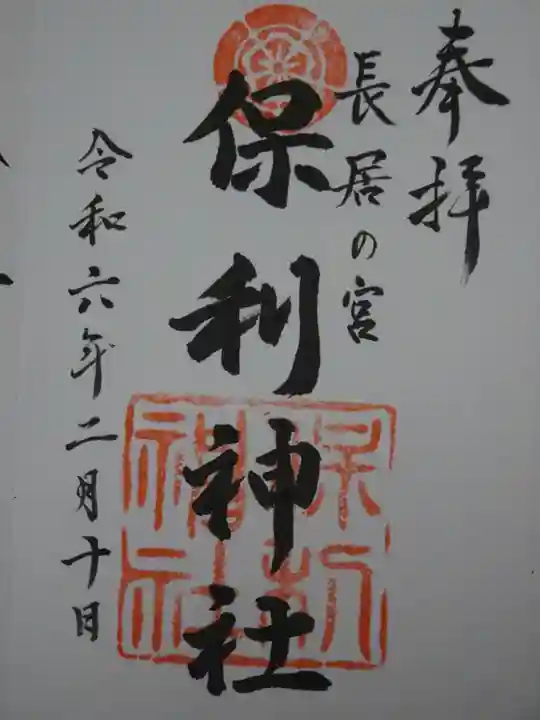 奉拝
長居の宮
保利神社
令和六年二月十日
保利
神社